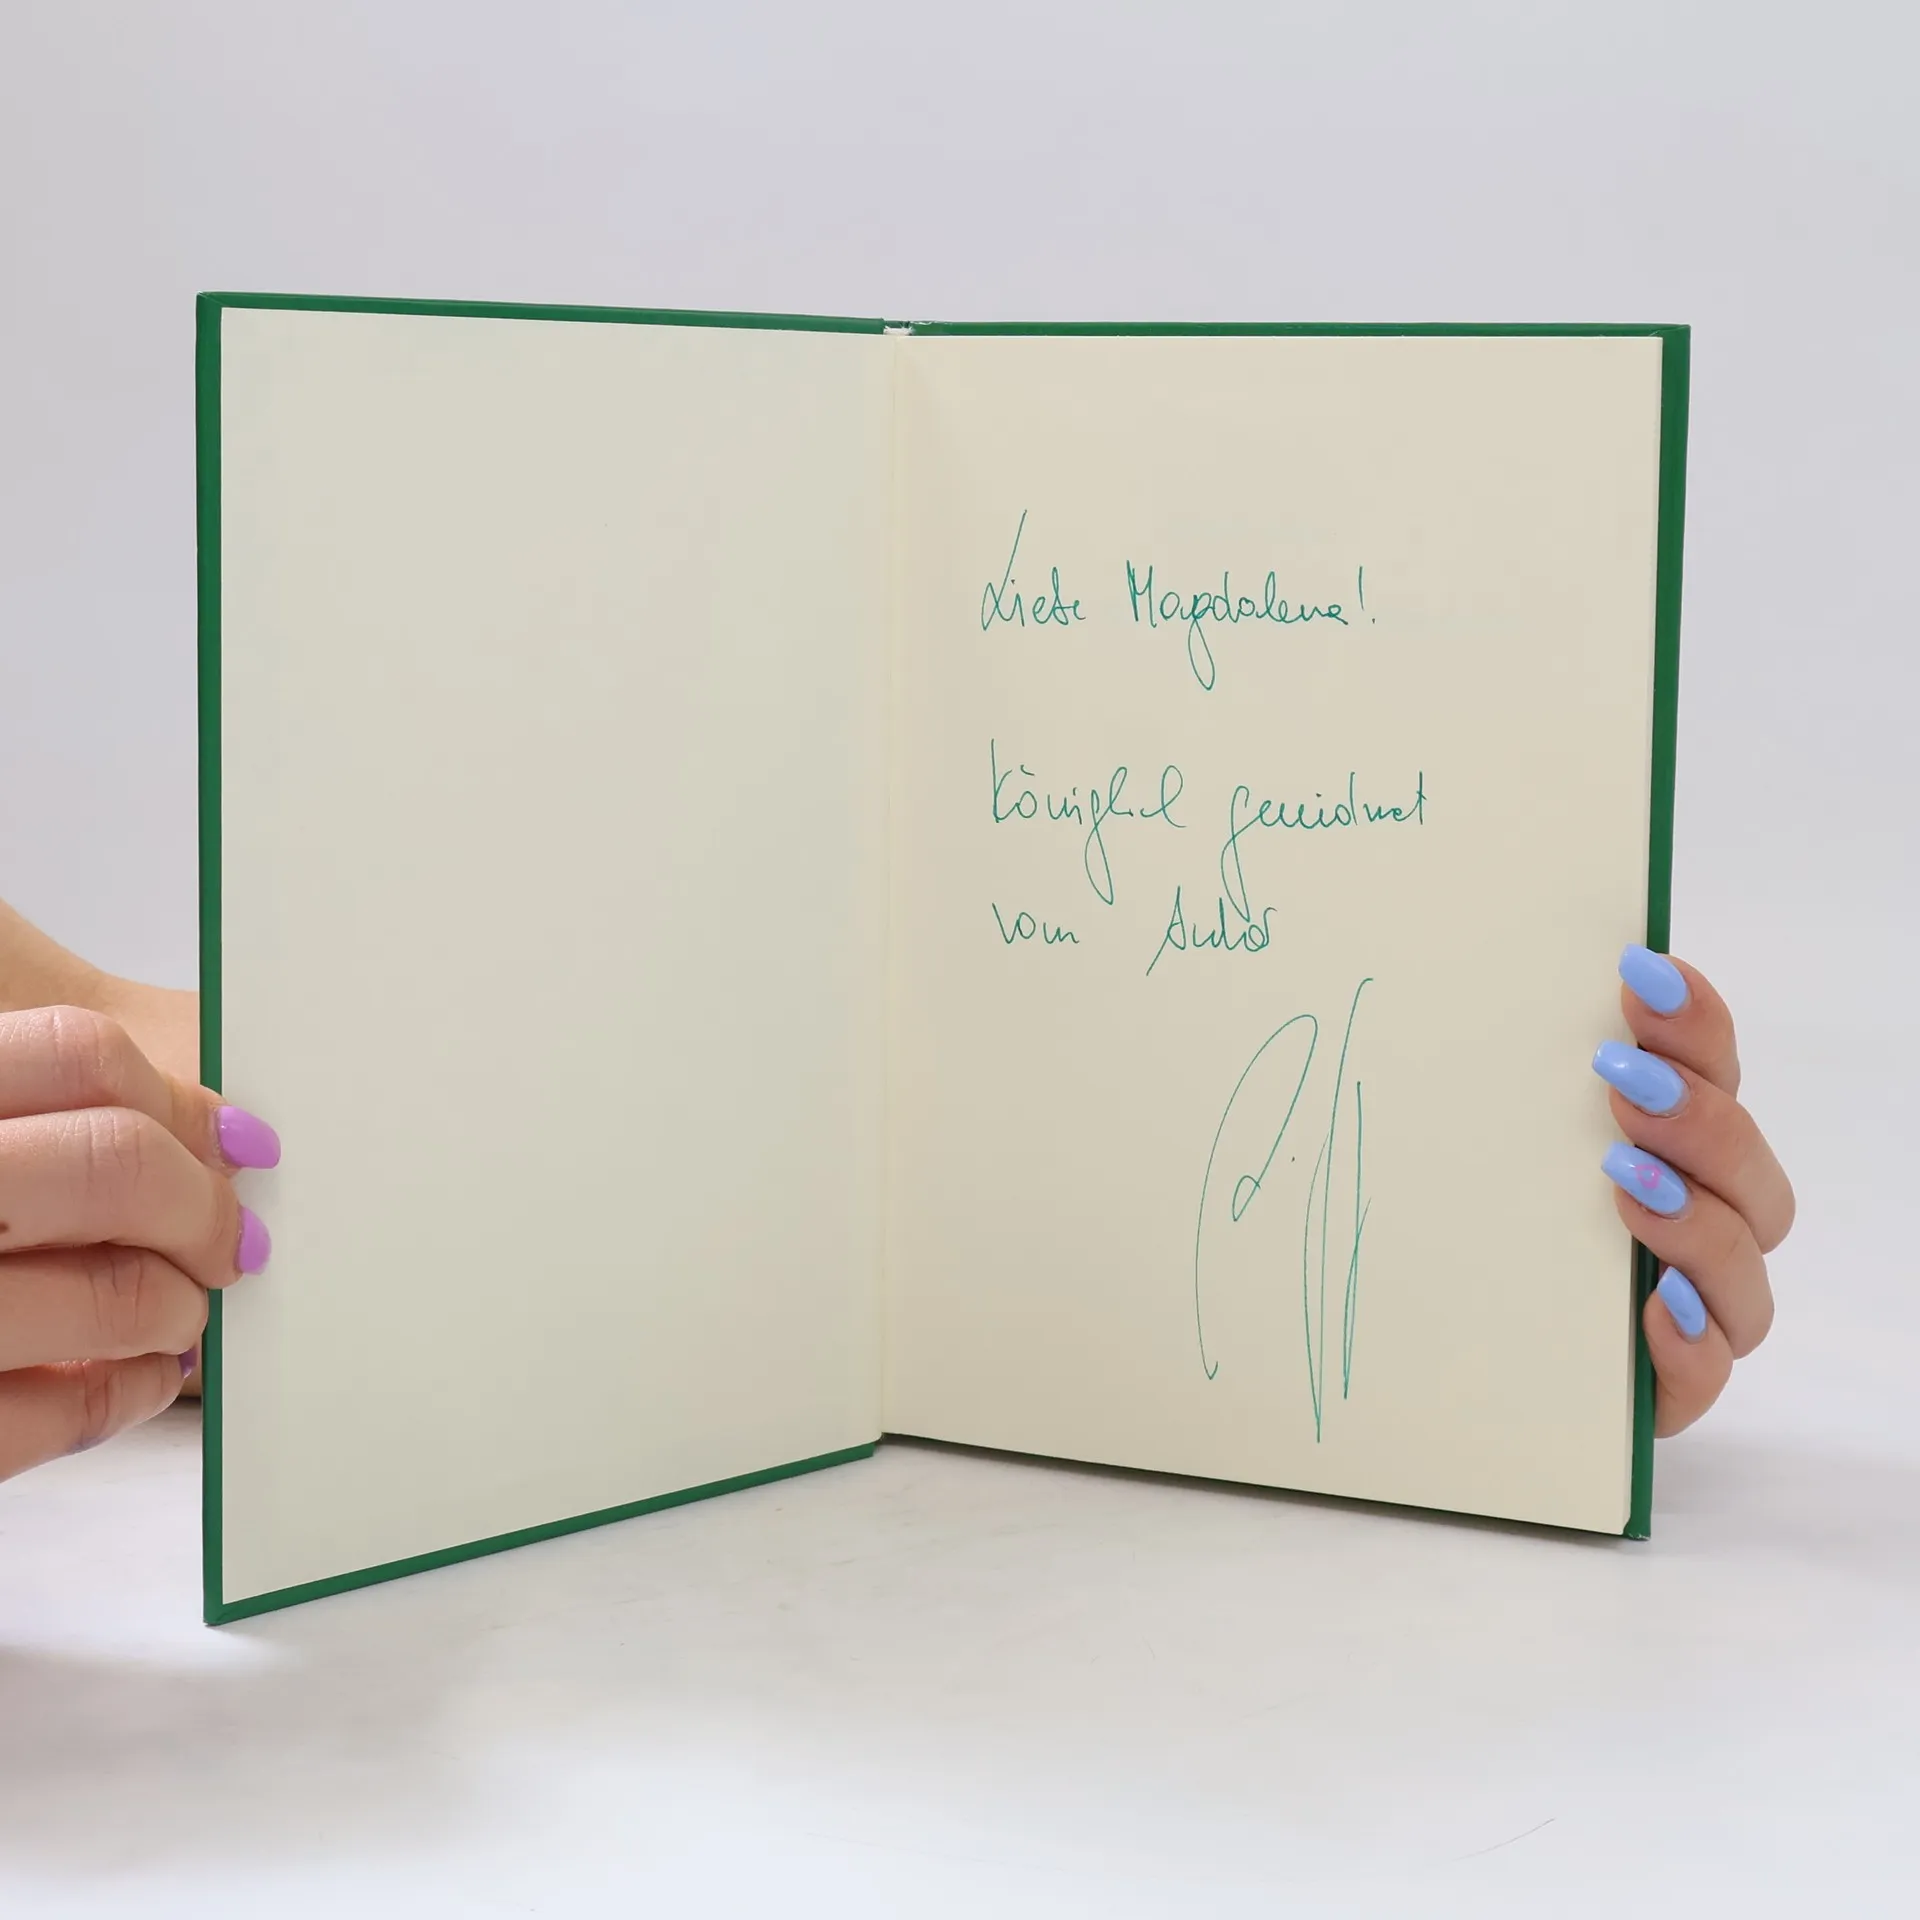 Liebe Magdalena!
Königlich gewidmet
vom Autor